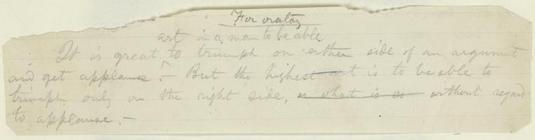 For oratory
art in a man to be able
It is great to triumph on either side of an argument
and get applause.— But the highest art is to be able to
triumph only on the right side, or what is so without regard
to applause.—